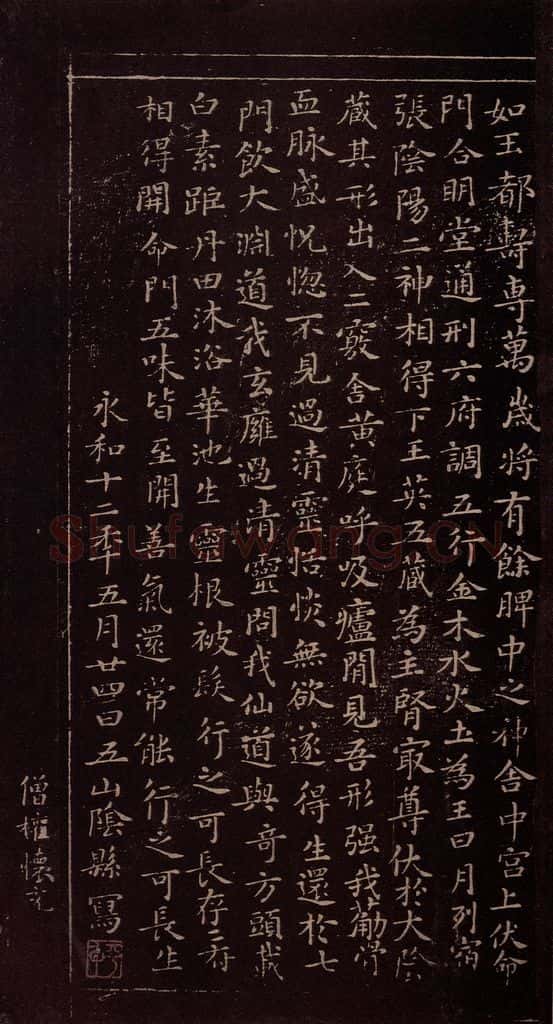 如王都壽専萬歲將有餘脾中之神舍中宮上伏命
門合明堂通刑六府調五行金木水火土為王日月列宿
張陰陽二神相得下王英五藏為主腎㝡尊伏於大陰
藏其形出入二竅舍黃庭呼吸廬間見吾形强我葥骨
血脉盛怳惚不見過清靈恬惔無欲遂得生還於七
門飲大渊道我玄廱過清靈問我仙道與奇方頭載
白素距丹田沐浴華池生靈根被髮行之可長存二府
相得開命門五味皆至開善氣還常能行之可長生
永和十二年五月廿四日五山陰縣寫
僧權懷充
Shufawang.cn